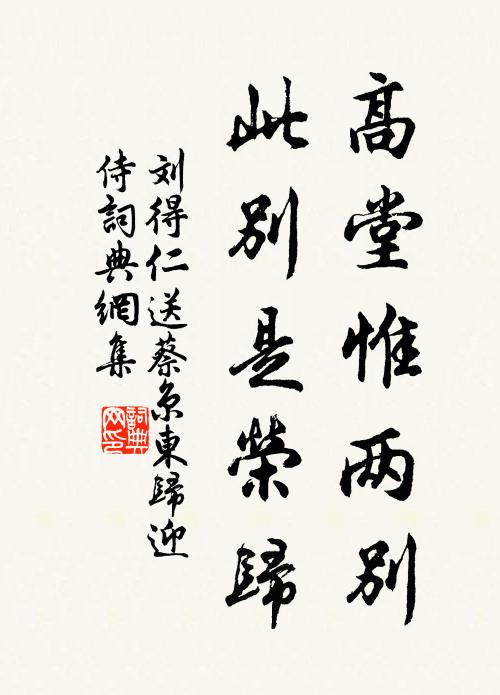 高堂惟两別
此別是榮歸
刘得仁送蔡京東歸迎
侍詞典網集
詞典
网印